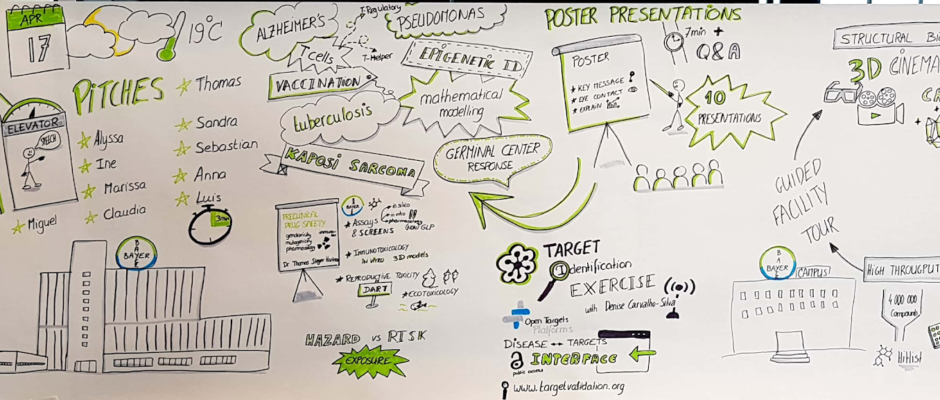 APR
17
19°C
PITCHES
ELEVATOR
SPEECH
Thomas
Alyssa
Ine
Marissa
Claudia
Miguel
Sandra
Sebastian
Anna
Luis
3min
BAYER
BAYER
ALZHEIMER'S
T cells
Regulatory
T-Helper
PSEUDOMONAS
VACCINATION
EPIGENETIC ID
tuberculosis
mathematical
modelling
KAPOSI SARCOMA
GERMINAL CENTER
RESPONSE
PRECLINICAL
DRUG SAFETY
genotoxicity
mutagenicity
pharmacology
Dr Thomas Steger
BAYER
BAYER
in silico
in vitro
pharmacology
NON GLP
ASSAYS
& SCREENS
IMMUNOTOXICOLOGY
IN VITRO 3D models
REPRODUCTIVE TOXICITY
DART
ECOTOXICOLOGY
HAZARD vs RISK
EXPOSURE
POSTER PRESENTATIONS
7min +
Q&A
POSTER
KEY MESSAGE
EYE CONTACT
EXPLAIN
10
PRESENTATIONS
TARGET
Identification
EXERCISE
with Denise Carvalho-Silva
Open Targets
Platforms
DISEASE ↔ TARGETS
INTERFACE
public access
www.targetvalidation.org
STRUCTURAL BI
3D CINEMA
GUIDED
FACILITY
TOUR
BAYER
BAYER
CAMPUS!
HIGH THROUGHPUT
4 000 000
Compounds
Hitlist